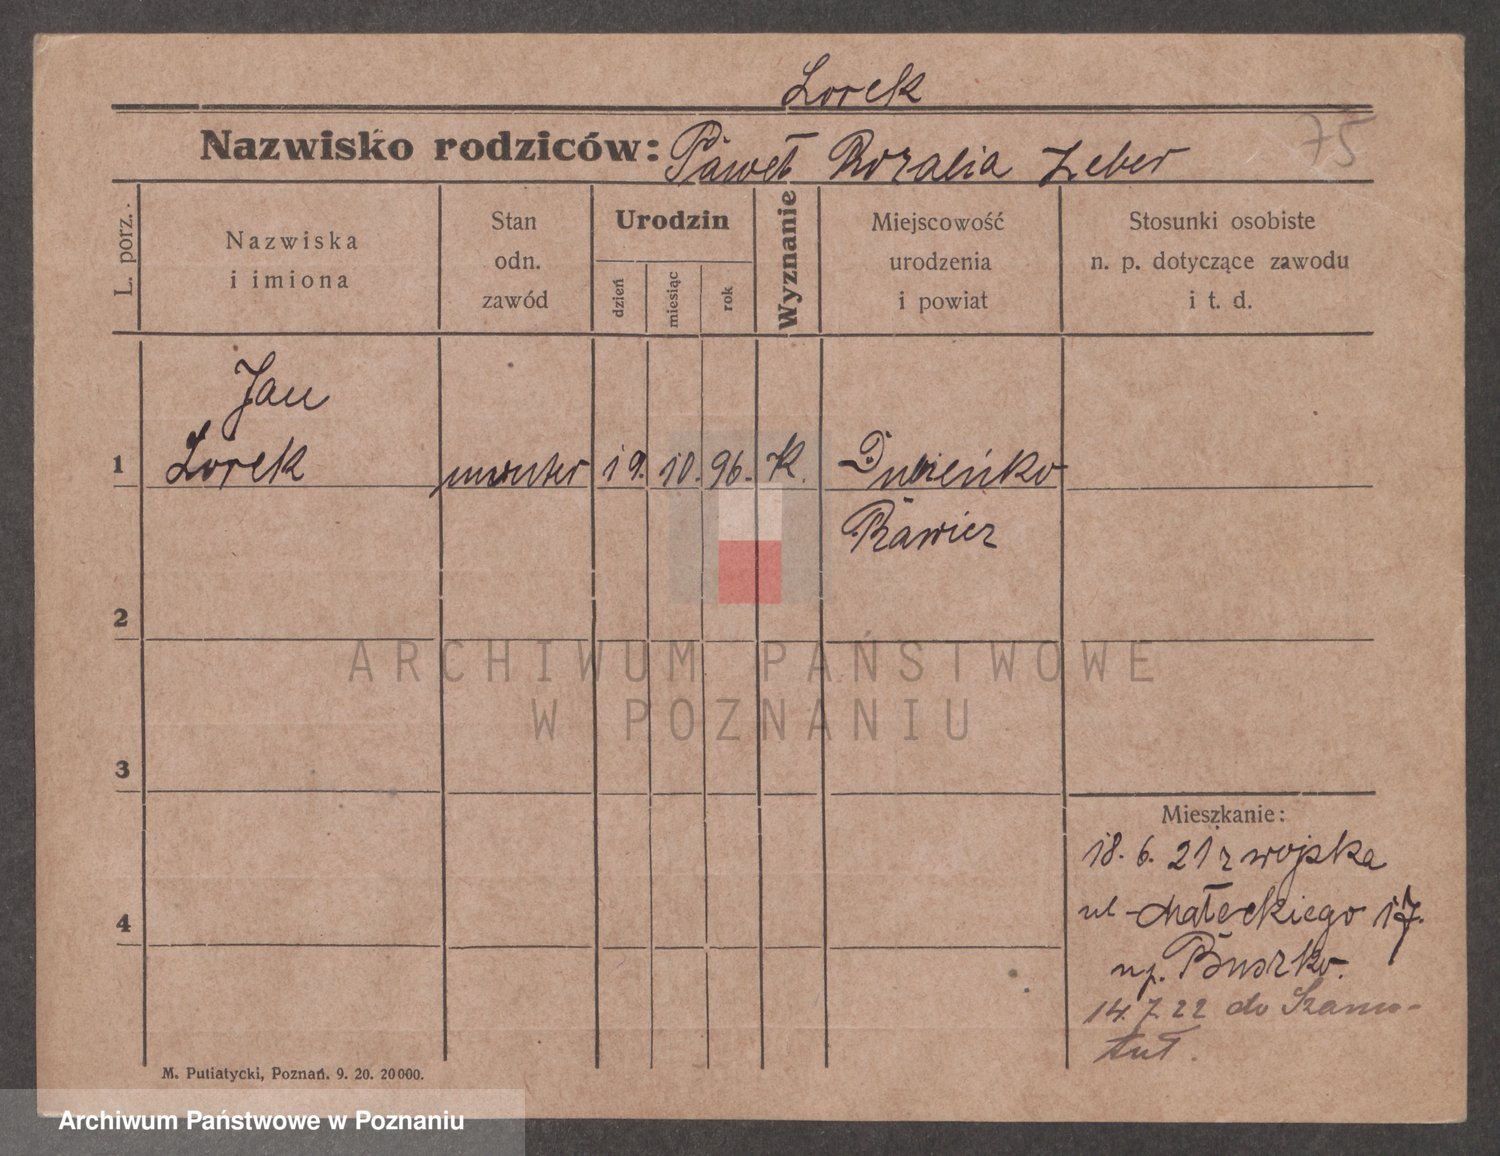 Lorek
75
Nazwisko rodziców: Paweł Rozalia Zeber
L. porz.
Nazwiska
i imiona
Stan
odn.
zawód
Urodzin
dzień
miesiąc
rok
Wyznanie
Miejscowość
urodzenia
i powiat
Stosunki osobiste
n. p. dotyczące zawodu
i t. d.
Jan
1 Lorek monter 19. 10. 96. K.
Rawicz
2
ARCHIWUM PAŃSTWOWE
W POZNANIU
3
Mieszkanie:
18. 6. 21 z wojska
ul Małeckiego 17.
4
14. 7. 22 do Szamo-
tuł.
M. Putiatycki, Poznań. 9. 20. 20000.
Archiwum Państwowe w Poznaniu